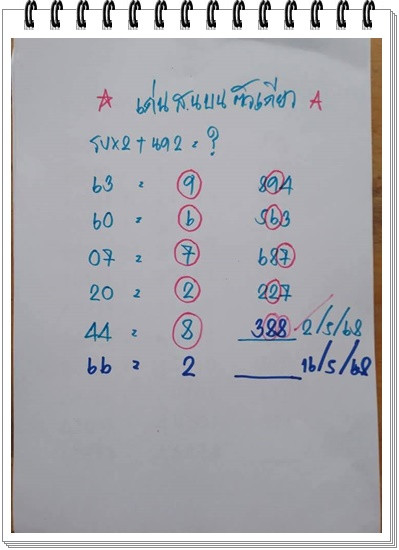 ☆ เด่น ส.นบน ตัวเดียว ☆
รบx2+นา2 = ?
63 = 9 894
60 = 6 563
07 = 7 687
20 = 2 227
44 = 8 388 2/5/68
66 = 2 16/5/68